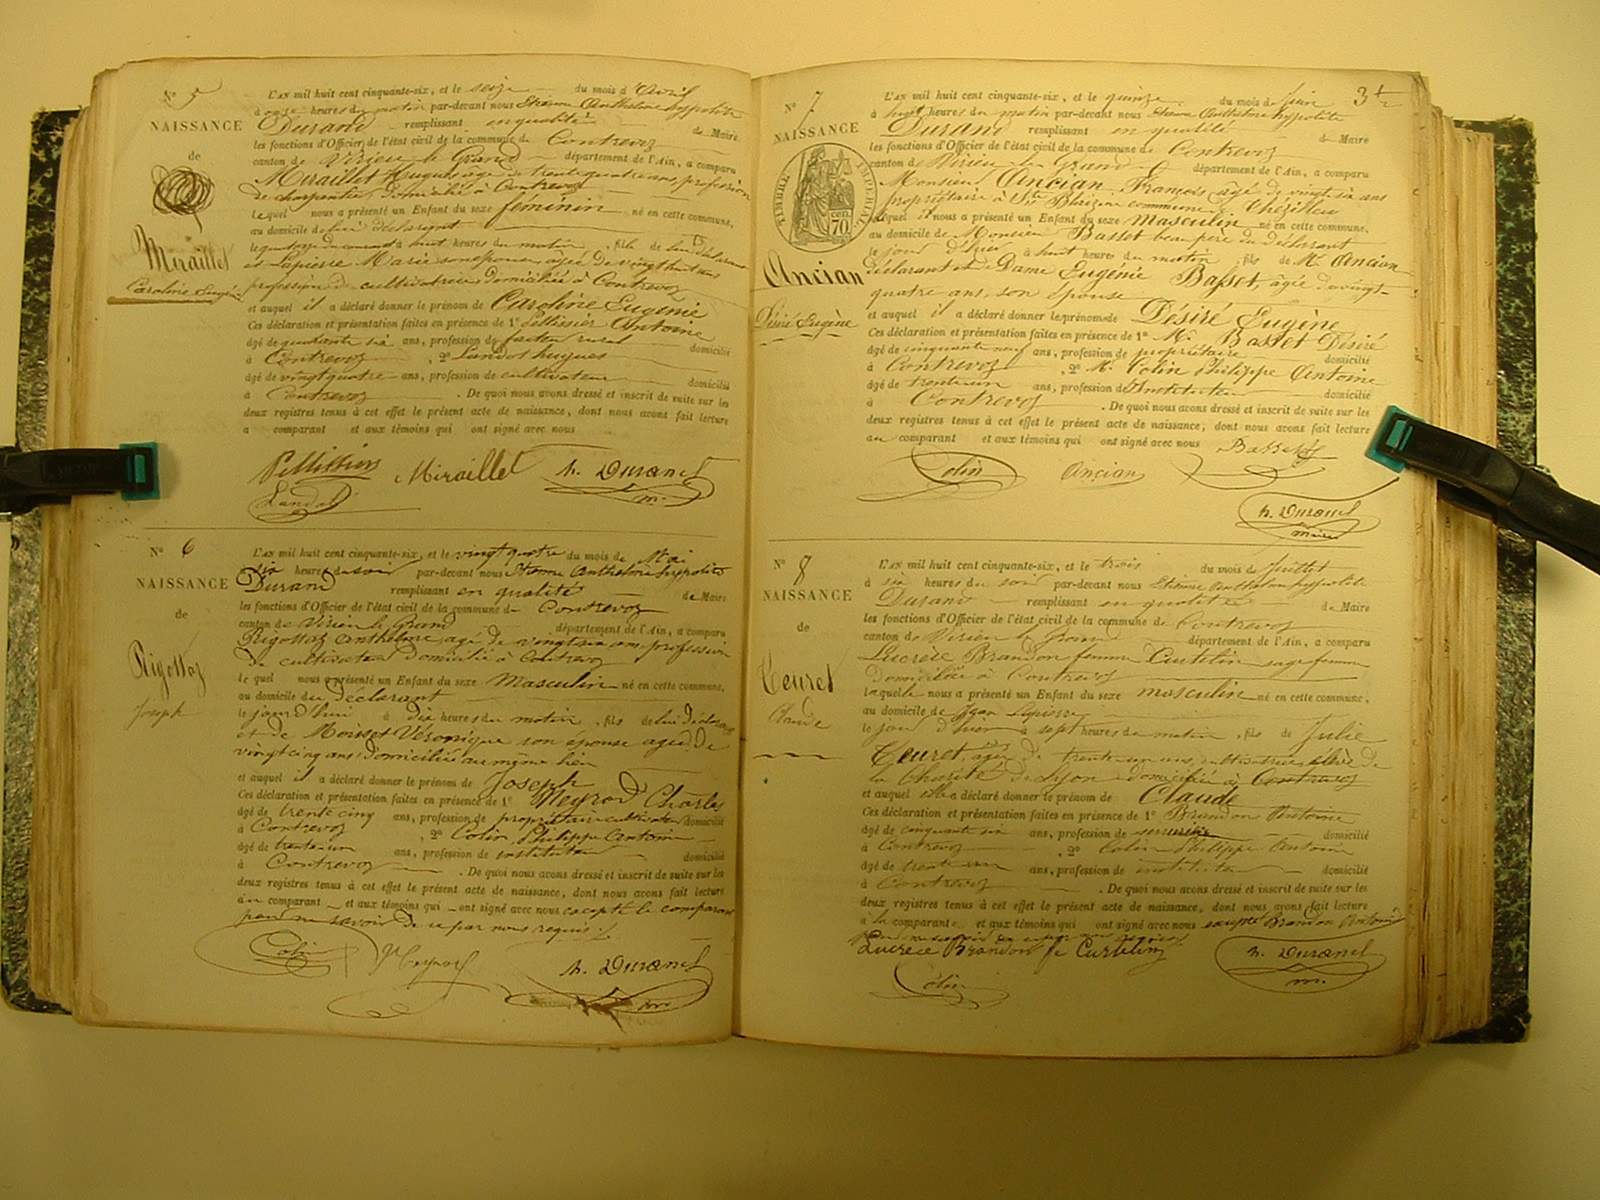 N° 5
NAISSANCE
de
Miraillet
Caroline Eugénie
L'AN mil huit cent cinquante-six, et le seize du mois d'Avril
à onze heures du matin par-devant nous Etienne Anthelme hyppolite
Durand remplissant en qualité de Maire
les fonctions d'Officier de l'état civil de la commune de Contrevoz
canton de Virieu le Grand département de l'Ain, a comparu
Miraillet Hugues âgé de trente quatre ans, profession
de charpentier, domicilié à Contrevoz
lequel nous a présenté un Enfant du sexe féminin né en cette commune,
au domicile de lui déclarant
le quatorze du courant à huit heures du matin, fils de lui déclarant
et Lapierre Marie son épouse, agée de vingt huit ans
profession de cultivatrice domiciliée à Contrevoz
et auquel il a déclaré donner le prénom de Caroline Eugénie
Ces déclaration et présentation faites en présence de 1° Pellissier Antoine
âgé de quarante six ans, profession de facteur rural domicilié
à Contrevoz, 2° Landot hugues
âgé de vingt quatre ans, profession de cultivateur domicilié
à Contrevoz. De quoi nous avons dressé et inscrit de suite sur les
deux registres tenus à cet effet le présent acte de naissance, dont nous avons fait lecture
a comparant et aux témoins qui ont signé avec nous
Pellissier Miraillet h. Durand
Landot m.
N° 6
NAISSANCE
de
Rigottaz
Joseph
L'AN mil huit cent cinquante-six, et le vingt quatre du mois de Mai
six heures du soir par-devant nous Etienne Anthelme hyppolite
Durand remplissant en qualité de Maire
les fonctions d'Officier de l'état civil de la commune de Contrevoz
canton de Virieu le Grand département de l'Ain, a comparu
Rigottaz Anthelme, agé de vingt six ans, profession
de cultivateur domicilié à Contrevoz
le quel nous a présenté un Enfant du sexe Masculin né en cette commune,
au domicile du déclarant
le jour d'hui à dix heures du matin, fils de lui déclarant
et de Moiset Véronique son épouse agée de
vingt cinq ans domiciliée au même lieu
et auquel il a déclaré donner le prénom de Joseph
Ces déclaration et présentation faites en présence de 1° Meyrod Charles
âgé de trente cinq ans, profession de propriétaire cultivateur domicilié
à Contrevoz, 2° Colin Philippe Antoine
âgé de trente un ans, profession de instituteur domicilié
à Contrevoz. De quoi nous avons dressé et inscrit de suite sur les
deux registres tenus à cet effet le présent acte de naissance, dont nous avons fait lecture
au comparant et aux témoins qui ont signé avec nous excepté le comparant
pour ne savoir de ce par nous requis
Colin Meyrod h. Durand
m.
3
N° 7
NAISSANCE
TIMBRE IMPERIAL
CEN. 70
Ancian
Désiré Eugène
L'AN mil huit cent cinquante-six, et le quinze du mois de Juin
à huit heures du matin par-devant nous Etienne Anthelme hyppolite
Durand remplissant en qualité de Maire
les fonctions d'Officier de l'état civil de la commune de Contrevoz
canton de Virieu le Grand département de l'Ain, a comparu
Monsieur Ancian François âgé de vingt six ans
propriétaire à St Blaize commune de Chézilleu
lequel nous a présenté un Enfant du sexe Masculin né en cette commune,
au domicile de Monsieur Basset beau père du déclarant
le jour d'hier à huit heures du matin, fils de Mr Ancian
déclarant et de Dame Eugénie Basset, âgée de vingt-
quatre ans, son épouse
et auquel il a déclaré donner le prénom de Désiré Eugène
Ces déclaration et présentation faites en présence de 1° Mr Basset Désiré
âgé de cinquante neuf ans, profession de propriétaire domicilié
à Contrevoz, 2° Mr Colin Philippe Antoine
âgé de trente un ans, profession d'Instituteur domicilié
à Contrevoz. De quoi nous avons dressé et inscrit de suite sur les
deux registres tenus à cet effet le présent acte de naissance, dont nous avons fait lecture
au comparant et aux témoins qui ont signé avec nous Basset
Colin Ancian
h. Durand
maire
N° 8
NAISSANCE
de
Teuret
Claude
L'AN mil huit cent cinquante-six, et le trois du mois de Juillet
à six heures du soir par-devant nous Etienne Anthelme hyppolite
Durand remplissant en qualité de Maire
les fonctions d'Officier de l'état civil de la commune de Contrevoz
canton de Virieu le Grand département de l'Ain, a comparu
Lucrèce Brandon femme Curtelin sage femme
domiciliée à Contrevoz
laquelle nous a présenté un Enfant du sexe masculin né en cette commune,
au domicile de Jean Lapierre
le jour d'hier à sept heures du matin, fils de Julie
Teuret, âgée de trente un ans, cultivatrice, élève de
la Charité de Lyon domiciliée à Contrevoz
et auquel elle a déclaré donner le prénom de Claude
Ces déclaration et présentation faites en présence de 1° Brandon Antoine
âgé de cinquante six ans, profession de serrurier domicilié
à Contrevoz, 2° Colin Philippe Antoine
âgé de trente un ans, profession de instituteur domicilié
à Contrevoz. De quoi nous avons dressé et inscrit de suite sur les
deux registres tenus à cet effet le présent acte de naissance, dont nous avons fait lecture
à la comparante et aux témoins qui ont signé avec nous excepté Brandon Antoine
Lucrèce Brandon fe Curtelin h. Durand
Colin m.